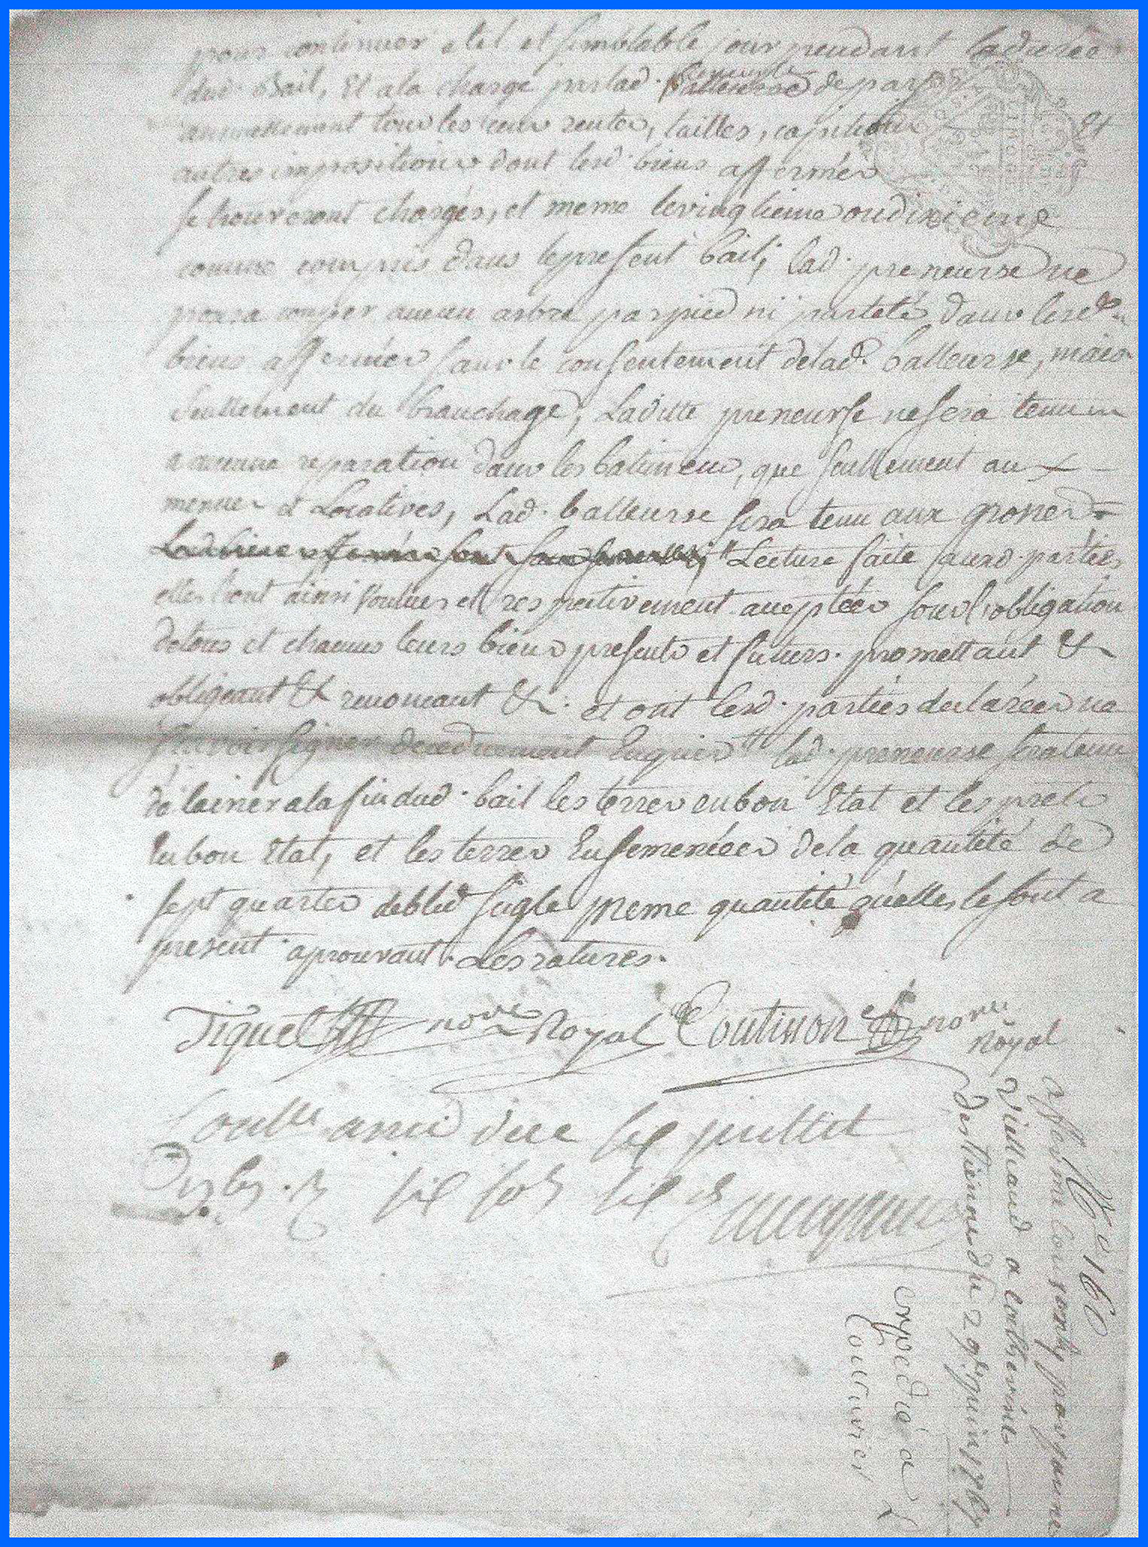 pour continuer a tel et semblable jour pendant la durée
dud. Bail, Et a la charge par lad. preneurse de payer
annuellement tous les cens rentes, tailles, capitions Et
autres impositions dont lesd. biens affermés
se trouveront chargés, et meme le vingtieme ou dixieme
comme compris dans le present bail; lad. preneurse ne
poura couper aucun arbre par pied ni par teté dans lesd.
biens affermés sans le consentement de lad. balleurse, mais
seullement du branchage, Laditte preneurse ne sera tenu
a aucune reparation dans les batimens, que seullement aux
menues et Locatives, Lad. balleurse sera tenu aux grosses
Lecture faite auxd parties
elles l'ont ainsi voulues et respectivement acceptées sous l'obligation
de tous et chacuns leurs biens presents et futurs. promettant &
obligeant & renoncant &. et ont lesd. parties declarées ne
scavoir signer de ce duement Enquis lad. preneurse sera tenu
de laisser a la fin dud. bail les terres en bon Etat et les prets
En bon Etat, et les terres Ensemencées de la quantité de
sept quartes de bled seigle meme quantité qu'elles le sont a
present aprouvant Les ratures.
Tiquet nore Royal Coutisson nore
Royal
six juillet
six sols six
No 160
afferme par jeanne
Vieilleaud a catherine
du 29e juin 1767
expedié a